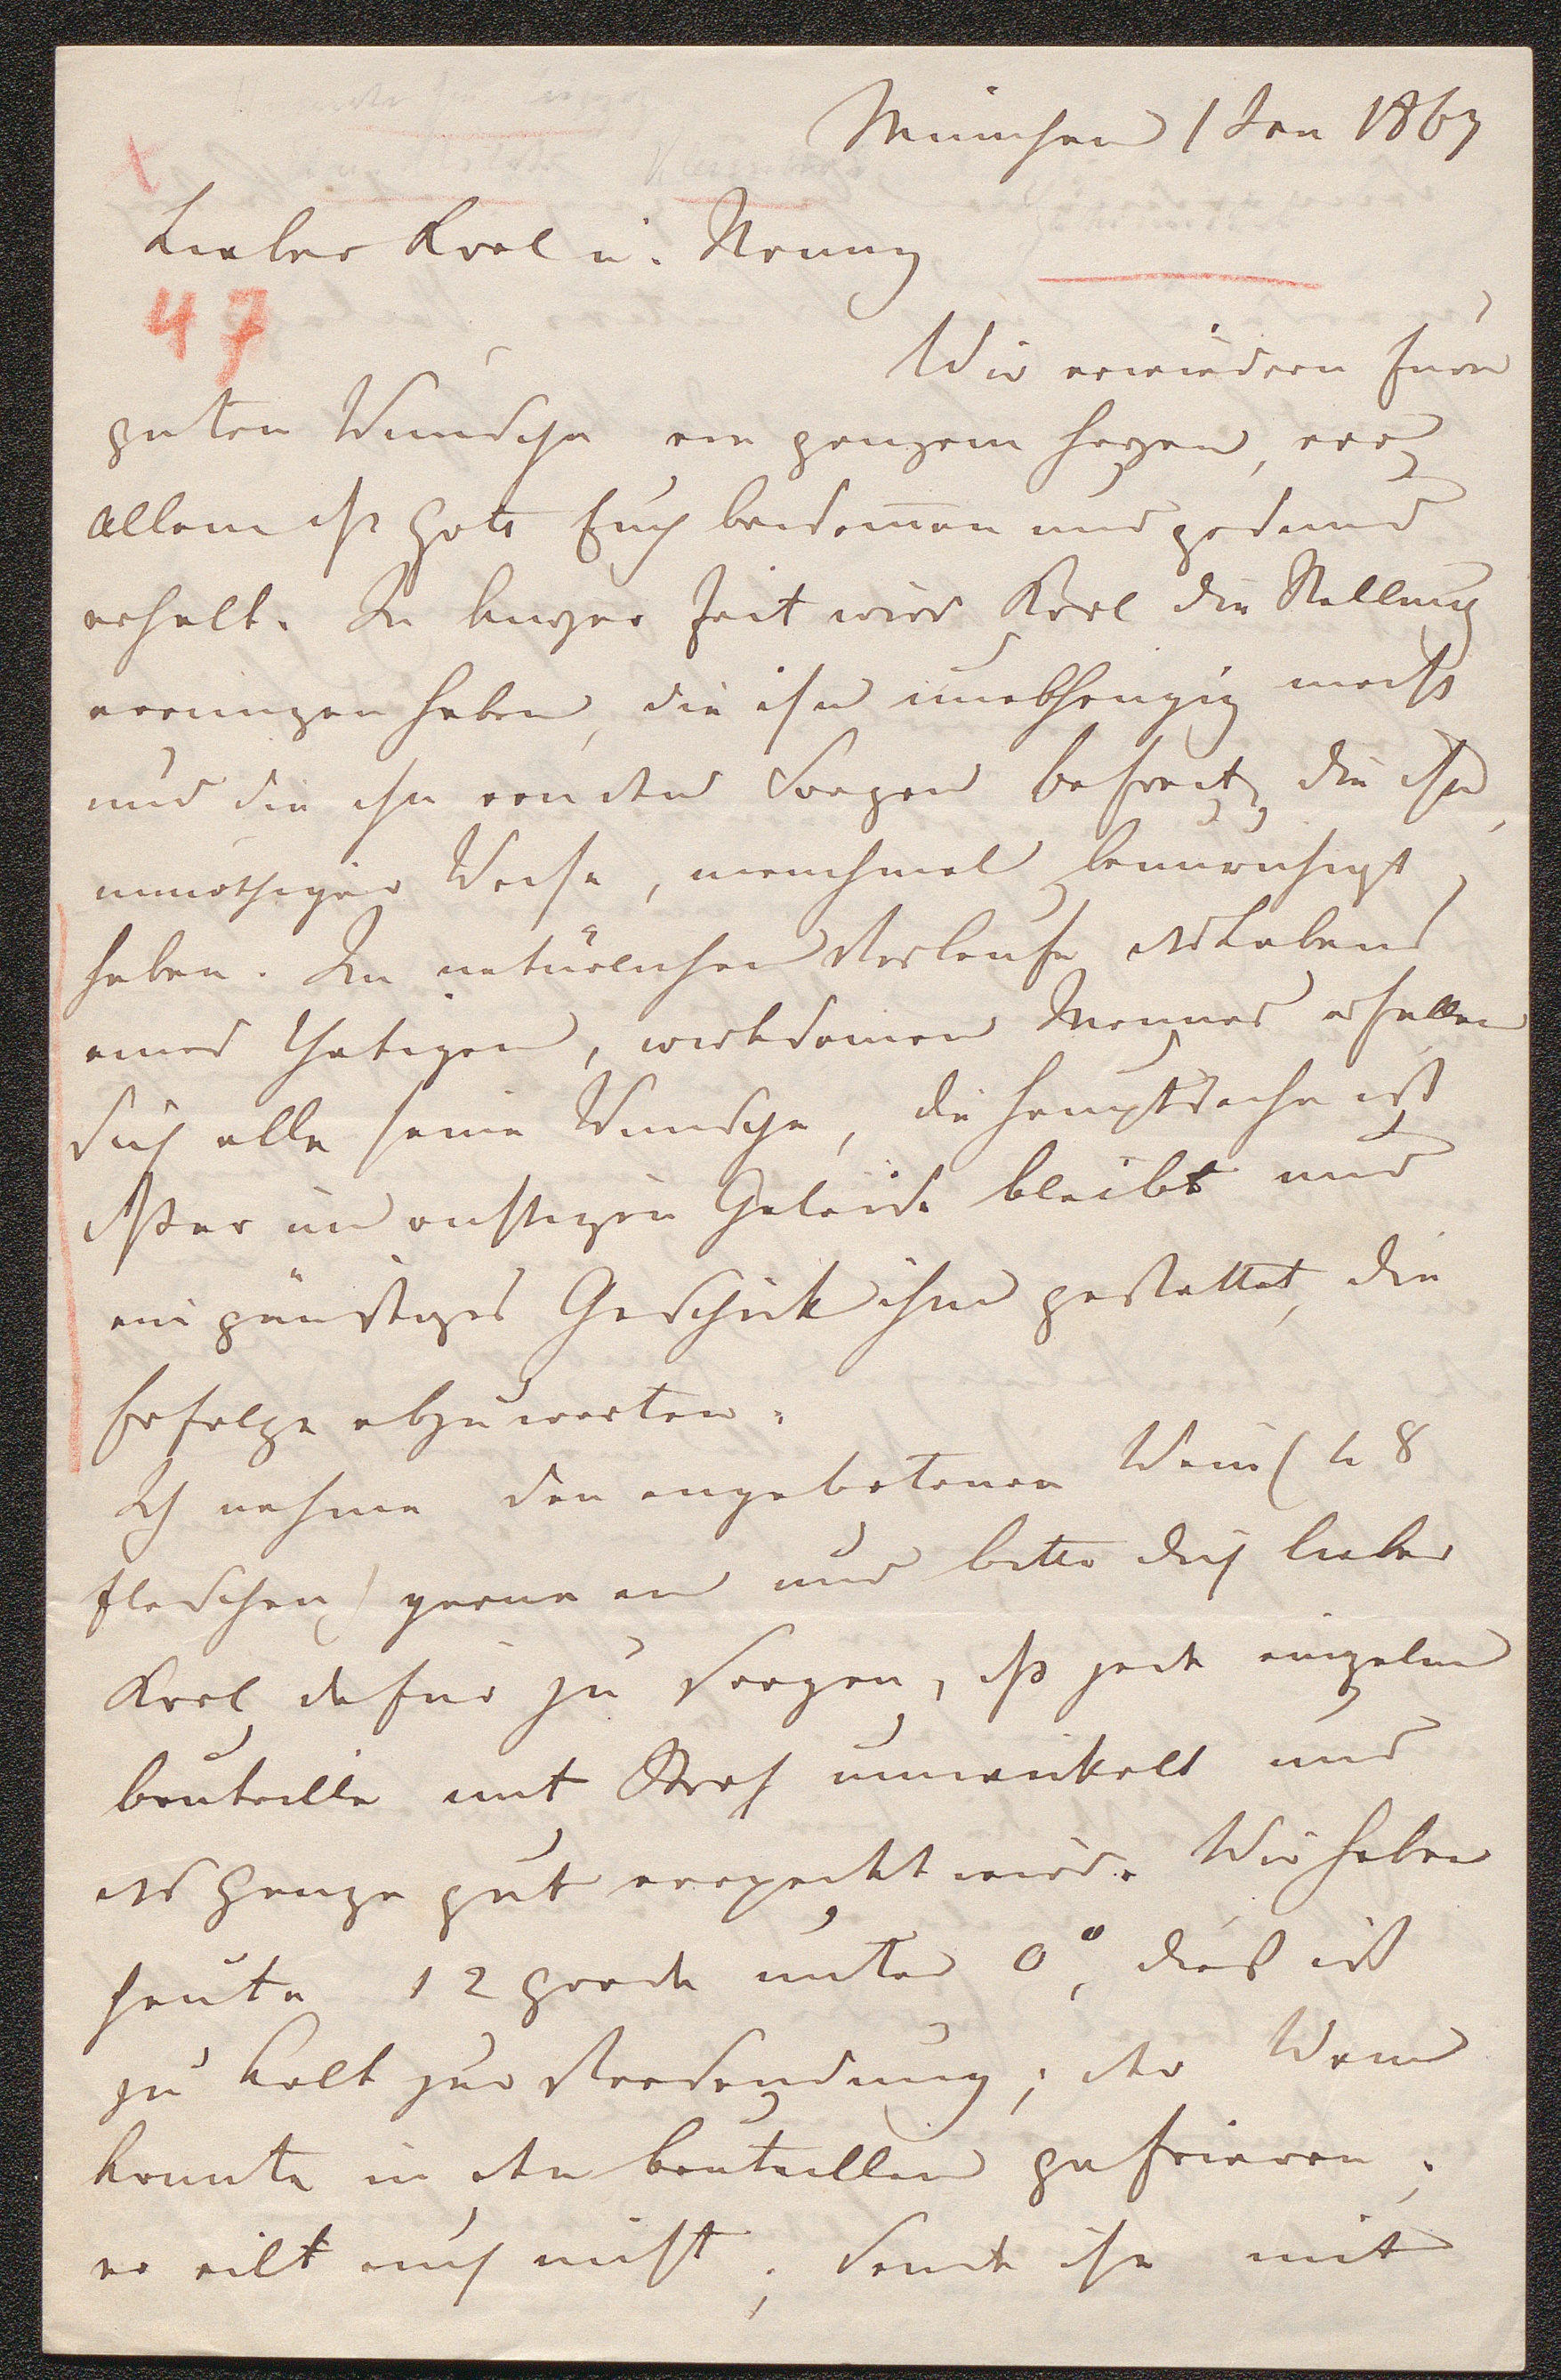 München 1 Jan 1867
Lieber Karl u. Nanny
47
Wir erwiedern Eure
guten Wünsche von ganzem Herzen, vor
allem daß Gott Euch beisammen und gesund
erhalte. In kurzer Zeit wird Karl die Stellung
errungen haben, die ihn unabhängig macht
und die ihn von den Sorgen befreit, die ihn,
unnöthiger Weise, manchmal beunruhigt
haben. Im natürlichen Verlaufe des Lebens
eines thätigen, wirksamen Mannes erfüllen
sich alle seine Wünsche, die Hauptsache ist
daß er im richtigen Geleise bleibt und
ein günstiges Geschick ihm gestattet, die
Erfolge abzuwarten.
Ich nehme den angebotenen Wein (48
Flaschen) gerne an und bitte dich lieber
Karl dafür zu sorgen, daß jede einzelne
bouteille mit Stroh umwickelt und
das Ganze gut verpackt wird. Wir haben
heute 12 Grade unter 0°, dieß ist
zu kalt zur Versendung; der Wein
könnte in den bouteillen gefrieren;
er eilt auch nicht; sende ihn mit